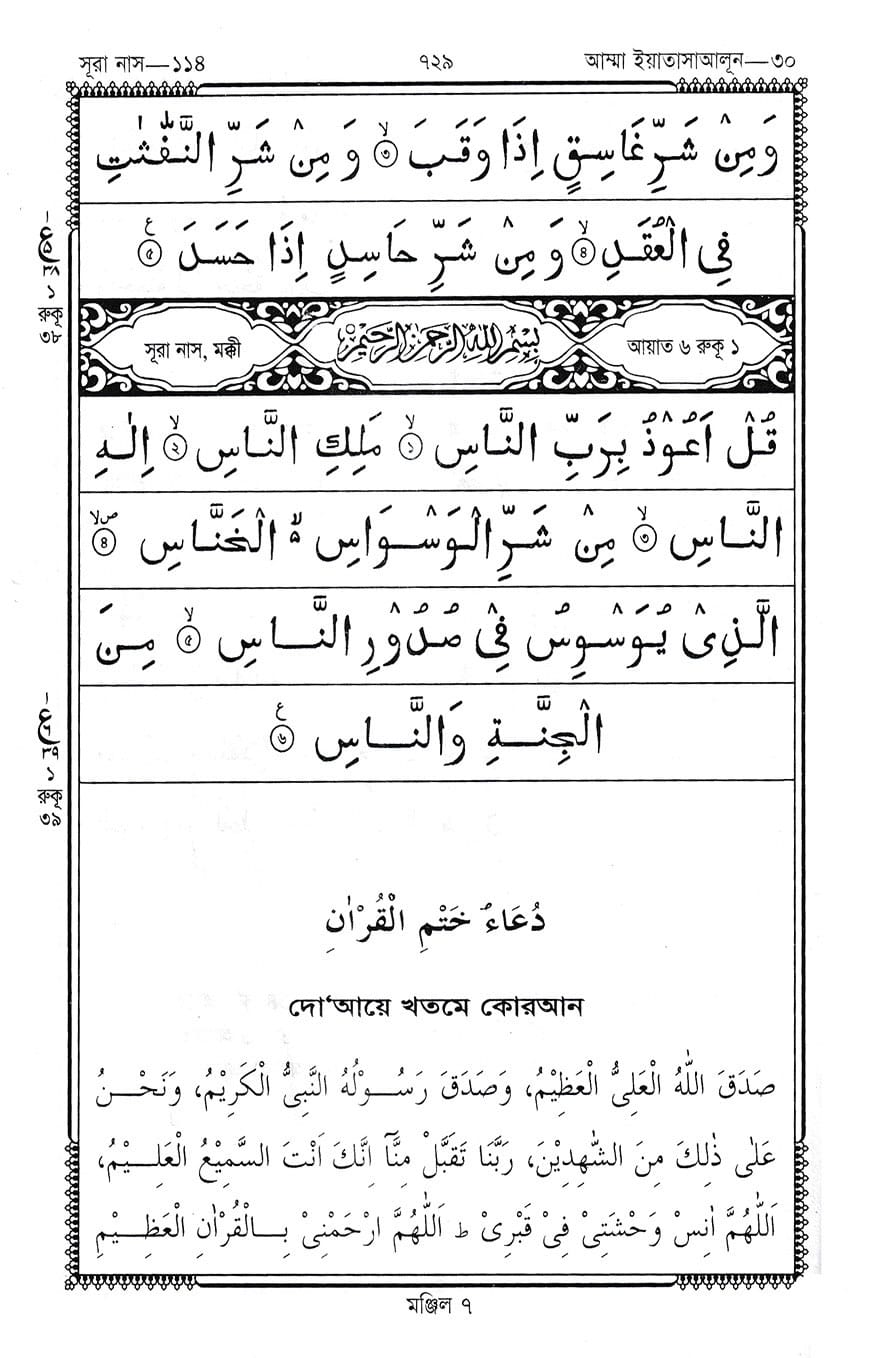 সূরা নাস—১১৪ ৭২৯ আম্মা ইয়াতাসাআলূন—৩০
وَمِنْ شَرِّ غَاسِقٍ اِذَا وَقَبَ ۙ﴿৩﴾ وَمِنْ شَرِّ النَّفّٰثٰتِ
فِي الْعُقَدِ ۙ﴿৪﴾ وَمِنْ شَرِّ حَاسِدٍ اِذَا حَسَدَ ﴿৫﴾ ع
সূরা নাস, মক্কী بِسْمِ اللهِ الرَّحْمٰنِ الرَّحِيْمِ আয়াত ৬ রুকূ ১
قُلْ اَعُوْذُ بِرَبِّ النَّاسِ ۙ﴿১﴾ مَلِكِ النَّاسِ ۙ﴿২﴾ اِلٰهِ
النَّاسِ ۙ﴿৩﴾ مِنْ شَرِّ الْوَسْوَاسِ ۙ۬ الْخَنَّاسِ ﴿৪﴾ صلا
الَّذِيْ يُوَسْوِسُ فِيْ صُدُوْرِ النَّاسِ ۙ﴿৫﴾ مِنَ
الْجِنَّةِ وَالنَّاسِ ﴿৬﴾ ع
১
রুকূ
৩৮
১
রুকূ
৩৯
دُعَاءُ خَتْمِ الْقُرْاٰنِ
দো‘আয়ে খতমে কোরআন
صَدَقَ اللّٰهُ الْعَلِىُّ الْعَظِيْمُ، وَصَدَقَ رَسُوْلُهُ النَّبِىُّ الْكَرِيْمُ، وَنَحْنُ
عَلٰى ذٰلِكَ مِنَ الشّٰهِدِيْنَ، رَبَّنَا تَقَبَّلْ مِنَّآ اِنَّكَ اَنْتَ السَّمِيْعُ الْعَلِيْمُ،
اَللّٰهُمَّ اٰنِسْ وَحْشَتِىْ فِىْ قَبْرِىْ ط اَللّٰهُمَّ ارْحَمْنِىْ بِالْقُرْاٰنِ الْعَظِيْمِ
মঞ্জিল ৭